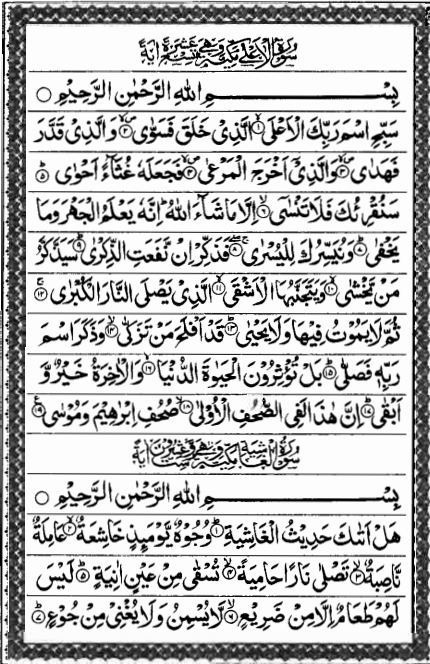 سورة الاعلى مكية وهي تسع عشرة اية
بِسْمِ اللهِ الرَّحْمٰنِ الرَّحِيْمِ ○
سَبِّحِ اسْمَ رَبِّكَ الْاَعْلَى ۙ﴿۱﴾ الَّذِيْ خَلَقَ فَسَوّٰى ۙ﴿۲﴾ وَالَّذِيْ قَدَّرَ
فَهَدٰى ۙ﴿۳﴾ وَالَّذِيْۤ اَخْرَجَ الْمَرْعٰى ۙ﴿۴﴾ فَجَعَلَهٗ غُثَآءً اَحْوٰى ؕ﴿۵﴾
سَنُقْرِئُكَ فَلَا تَنْسٰٓى ۙ﴿۶﴾ اِلَّا مَا شَآءَ اللهُ ؕ اِنَّهٗ يَعْلَمُ الْجَهْرَ وَمَا
يَخْفٰى ؕ﴿۷﴾ وَنُيَسِّرُكَ لِلْيُسْرٰى ۚ﴿۸﴾ فَذَكِّرْ اِنْ نَّفَعَتِ الذِّكْرٰى ؕ﴿۹﴾ سَيَذَّكَّرُ
مَنْ يَّخْشٰى ۙ﴿۱۰﴾ وَيَتَجَنَّبُهَا الْاَشْقَى ۙ﴿۱۱﴾ الَّذِيْ يَصْلَى النَّارَ الْكُبْرٰى ۚ﴿۱۲﴾
ثُمَّ لَا يَمُوْتُ فِيْهَا وَلَا يَحْيٰى ؕ﴿۱۳﴾ قَدْ اَفْلَحَ مَنْ تَزَكّٰى ۙ﴿۱۴﴾ وَذَكَرَ اسْمَ
رَبِّهٖ فَصَلّٰى ؕ﴿۱۵﴾ بَلْ تُؤْثِرُوْنَ الْحَيٰوةَ الدُّنْيَا ۖ﴿۱۶﴾ وَالْاٰخِرَةُ خَيْرٌ وَّ
اَبْقٰى ؕ﴿۱۷﴾ اِنَّ هٰذَا لَفِي الصُّحُفِ الْاُوْلٰى ۙ﴿۱۸﴾ صُحُفِ اِبْرٰهِيْمَ وَمُوْسٰى ﴿۱۹﴾
سورة الغاشية مكية وهي ست وعشرون اية
بِسْمِ اللهِ الرَّحْمٰنِ الرَّحِيْمِ ○
هَلْ اَتٰىكَ حَدِيْثُ الْغَاشِيَةِ ؕ﴿۱﴾ وُجُوْهٌ يَّوْمَئِذٍ خَاشِعَةٌ ۙ﴿۲﴾ عَامِلَةٌ
نَّاصِبَةٌ ۙ﴿۳﴾ تَصْلٰى نَارًا حَامِيَةً ۙ﴿۴﴾ تُسْقٰى مِنْ عَيْنٍ اٰنِيَةٍ ؕ﴿۵﴾ لَيْسَ
لَهُمْ طَعَامٌ اِلَّا مِنْ ضَرِيْعٍ ۙ﴿۶﴾ لَّا يُسْمِنُ وَلَا يُغْنِيْ مِنْ جُوْعٍ ؕ﴿۷﴾